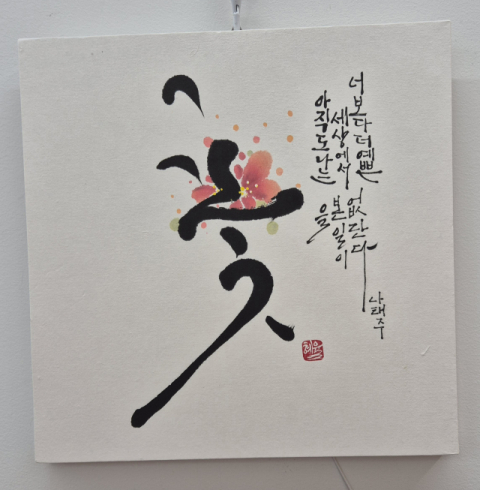 너보다 더 예쁜
꽃
을
아직도 나는
세상에서
본 일이
없단다
나태주